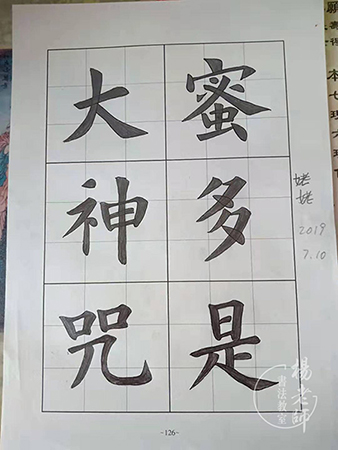 蜜多是
大神咒
姥姥
2019
7.10
-126-
楊老師
書法教室
本